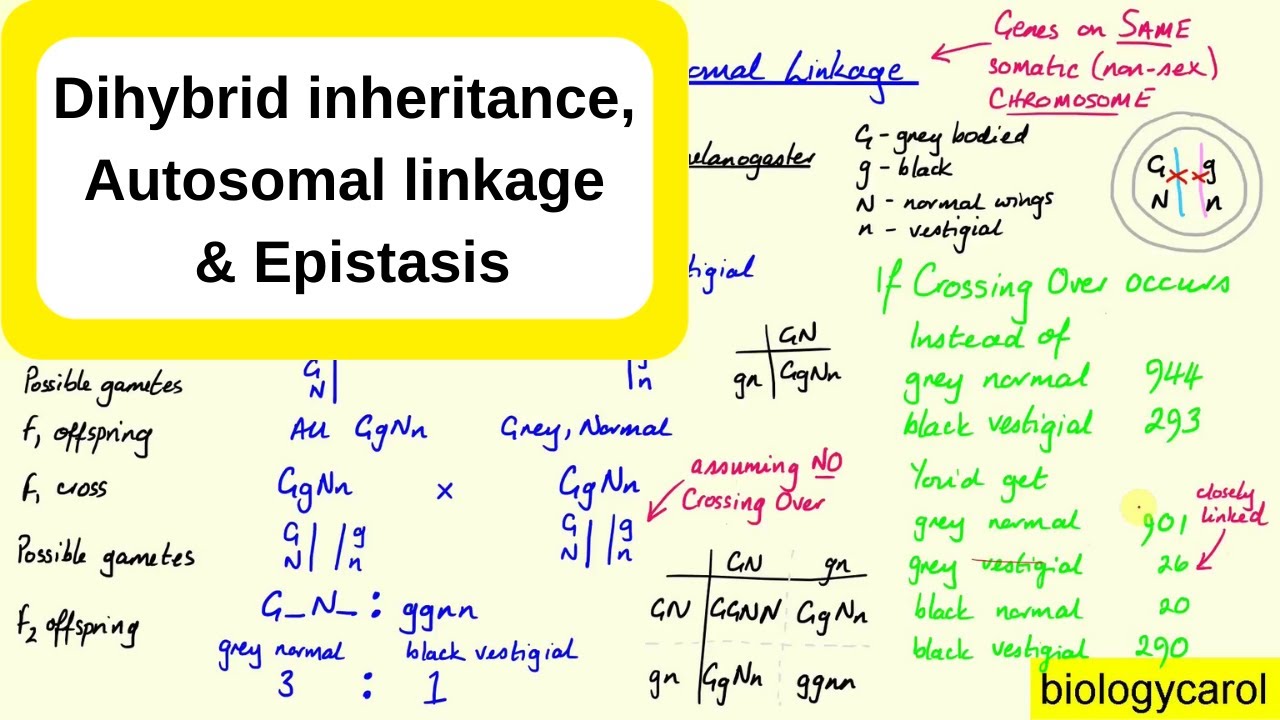 Dihybrid inheritance,
Autosomal linkage
& Epistasis
omal Linkage
Genes on SAME
somatic (non-sex)
CHROMOSOME
elanogaster
G - grey bodied
g - black
N - normal wings
n - vestigial
G g
N n
tigial
GN
gn GgNn
Possible gametes
G
N
g
n
F1 offspring All GgNn Grey, Normal
F1 cross GgNn x GgNn
assuming NO
Crossing Over
Possible gametes
G g G g
N n N n
F2 offspring G_N_ : ggnn
grey normal black vestigial
3 : 1
GN gn
GN GGNN GgNn
gn GgNn ggnn
If Crossing Over occurs
Instead of
grey normal 944
black vestigial 293
You'd get
grey normal 901
closely
linked
grey vestigial 26
black normal 20
black vestigial 290
biologycarol